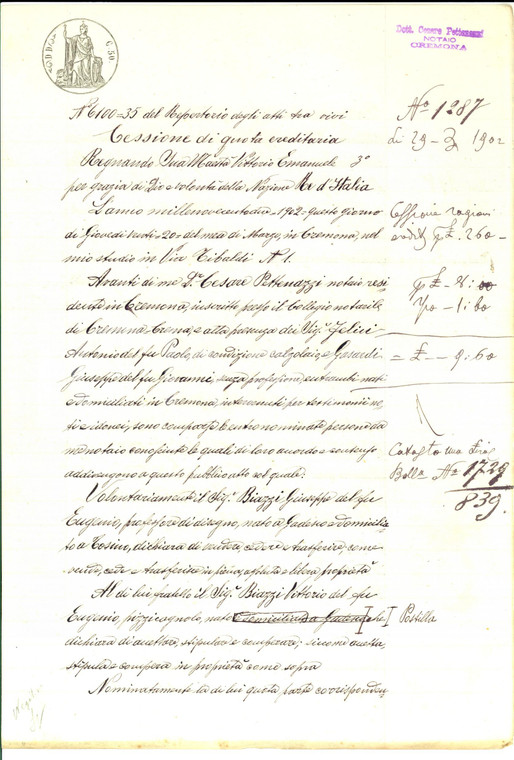 C. 50
Dott. Cesare Pettenazzi
NOTAIO
CREMONA
N° 6100=35 del Repertorio degli atti tra vivi
Cessione di quota ereditaria
Regnando Sua Maestà Vittorio Emanuele 3°
per grazia di Dio e volontà della Nazione Re d'Italia
L'anno millenovecentodue=1902=questo giorno
di Giovedì venti=20=del mese di Marzo, in Cremona, nel
mio studio in Via Tibaldi N° 1.
Avanti di me Dr. Cesare Pettenazzi notaio resi
dente in Cremona, inscritto presso il Collegio notarile
di Cremona, Crema, e alla presenza dei Sigri Felici
Antonio del fu Paolo, di condizione calzolaio, e Gerardi
Giuseppe del fu Giovanni, senza professione, entrambi nati
e domiciliati in Cremona, intervenuti per testimonii no
ti e idonei, sono comparse le entro nominate persone da
me notaio conosciute le quali di loro accordo e consenso
addivengono a questo pubblico atto col quale:
Volontariamente il Sigr Biazzi Giuseppe del fu
Eugenio, professore di disegno, nato a Gadesco e domicilia
to a Torino, dichiara di vendere, cedere e trasferire, come
vende, cede e trasferisce in piena, assoluta e libera proprietà
Al di lui fratello il Sigr Biazzi Vittorio del fu
Eugenio, pizzicagnolo, nato e domiciliato a Gadesco che
dichiara di accettare, stipulare e comperare, siccome accetta,
stipula e compera in proprietà come sopra
Nominatamente la di lui quota parte corrisponden
N° 1287
li 29-3 1902
Cessione ragioni
ered. p £. 260 -
= £ - 9:60
Bolla N° 1729
839.
Postilla